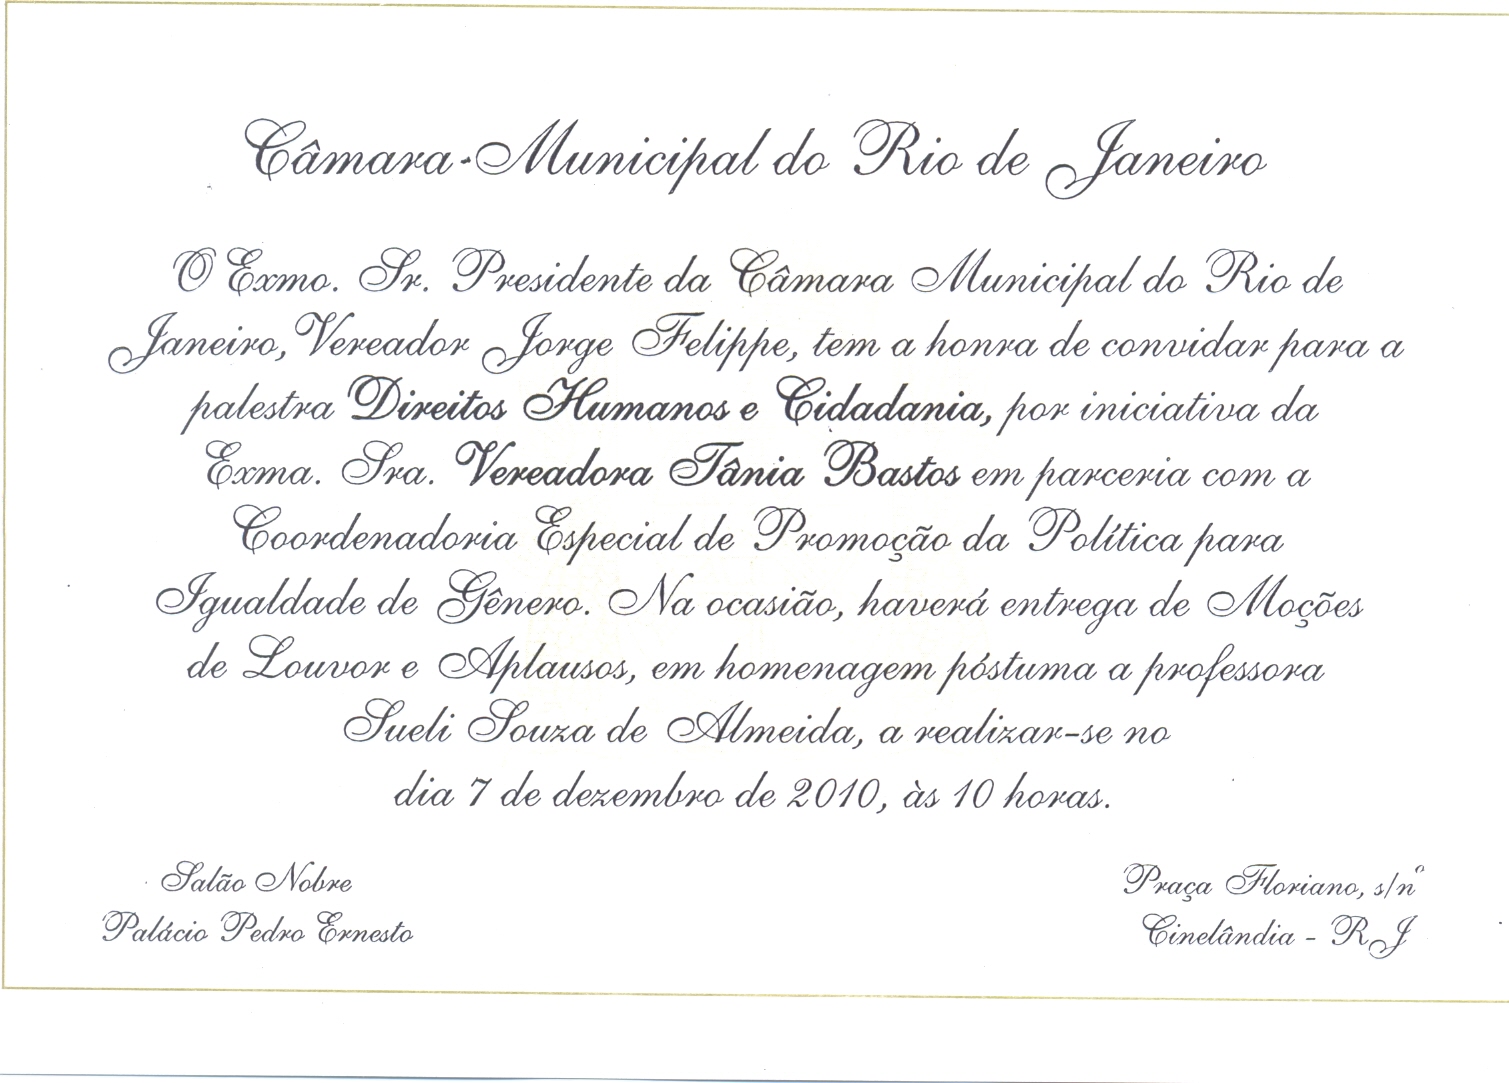 Câmara Municipal do Rio de Janeiro
O Exmo. Sr. Presidente da Câmara Municipal do Rio de
Janeiro, Vereador Jorge Felippe, tem a honra de convidar para a
palestra Direitos Humanos e Cidadania, por iniciativa da
Exma. Sra. Vereadora Tânia Bastos em parceria com a
Coordenadoria Especial de Promoção da Política para
Igualdade de Gênero. Na ocasião, haverá entrega de Moções
de Louvor e Aplausos, em homenagem póstuma a professora
Sueli Souza de Almeida, a realizar-se no
dia 7 de dezembro de 2010, às 10 horas.
Salão Nobre
Palácio Pedro Ernesto
Praça Floriano, s/nº
Cinelândia - RJ